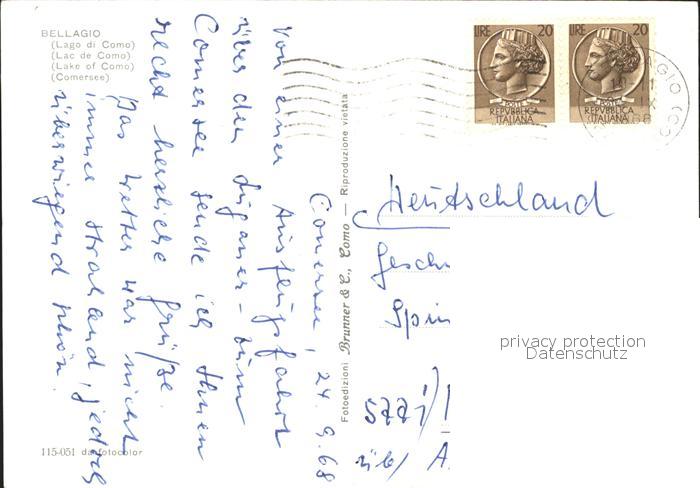 BELLAGIO
(Lago di Como)
(Lac de Como)
(Lake of Como)
(Comersee)
Comersee, 24. 9. 68
Von einer Ausflugsfahrt
über den Luganer- zum
Comersee sende ich Ihnen
recht herzliche Grüße.
Das Wetter war nicht
immer strahlend, jedoch
überwiegend schön.
115-051 dafotocolor
Fotoedizioni Brunner & C., Como — Riproduzione vietata
LIRE 20
POSTE
REPVBBLICA
ITALIANA
LIRE 20
POSTE
REPVBBLICA
ITALIANA
Deutschland
Gesch
Spin
privacy protection
Datenschutz
üb/ A